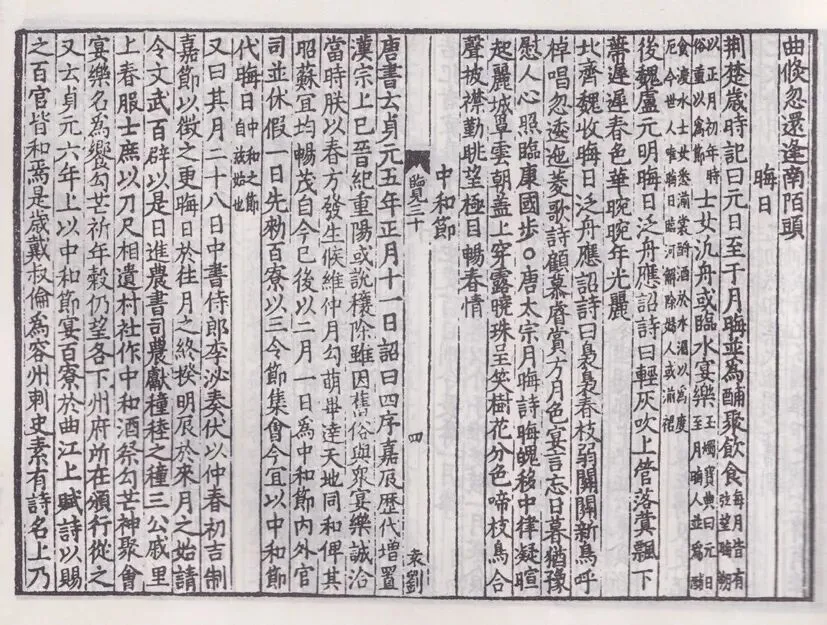 曲倐忽還逢南陌頭
晦日
荆楚歲時記曰元日至于月晦並為酺聚飲食每月皆有弦望晦朔
以正月初年時俗重以為節士女泛舟或臨水宴樂玉燭寶典曰元日至月晦人並為酺
食渡水士女悉湔裳酹酒於水湄以為度厄今世人唯晦日臨河解除婦人或湔裙
後魏盧元明晦日泛舟應詔詩曰輕灰吹上管落蓂飄下
蔕遲遲春色華晼晼年光麗
北齊魏收晦日泛舟應詔詩曰裊裊春枝弱關關新鳥呼
棹唱忽逶迤菱歌詩顧慕睿賞方月色宴言忘日暮猶豫
慰人心照臨康國步○唐太宗月晦詩晦魄移中律凝暄
起麗城罩雲朝盖上穿露曉珠呈笑樹花分色啼枝鳥合
聲披襟勤眺望極目暢春情
中和節
覽三十
四
袁劉
唐書云貞元五年正月十一日詔曰四序嘉辰歷代增置
漢宗上巳晉紀重陽或說穰除雖因舊俗與衆宴樂誠洽
當時朕以春方發生候維仲月勾萌畢達天地同和俾其
昭蘇宜均暢茂自今已後以二月一日為中和節內外官
司並休假一日先勑百寮以三令節集會今宜以中和節
代晦日中和之節自茲始也
又曰其月二十八日中書侍郎李泌奏伏以仲春初吉制
嘉節以徵之更晦日於往月之終揆明辰於來月之始請
令文武百辟以是日進農書司農獻穜稑之種三公戚里
上春服士庶以刀尺相遺村社作中和酒祭勾芒神聚會
宴樂名為饗勾芒祈年穀仍望各下州府所在頒行從之
又云貞元六年上以中和節宴百寮於曲江上賦詩以賜
之百官皆和焉是歲戴叔倫為容州刺史素有詩名上乃